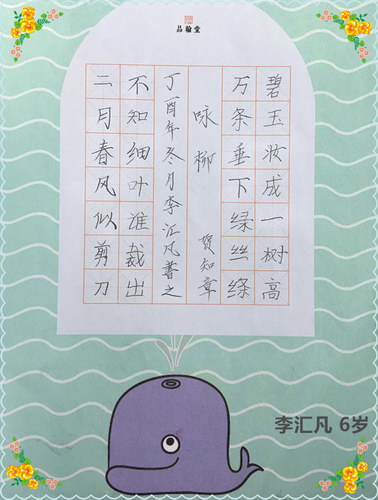 品翰堂
碧玉妆成一树高
万条垂下绿丝绦
咏柳 贺知章
丁酉年冬月李汇凡書之
不知细叶谁裁出
二月春风似剪刀
李汇凡 6岁